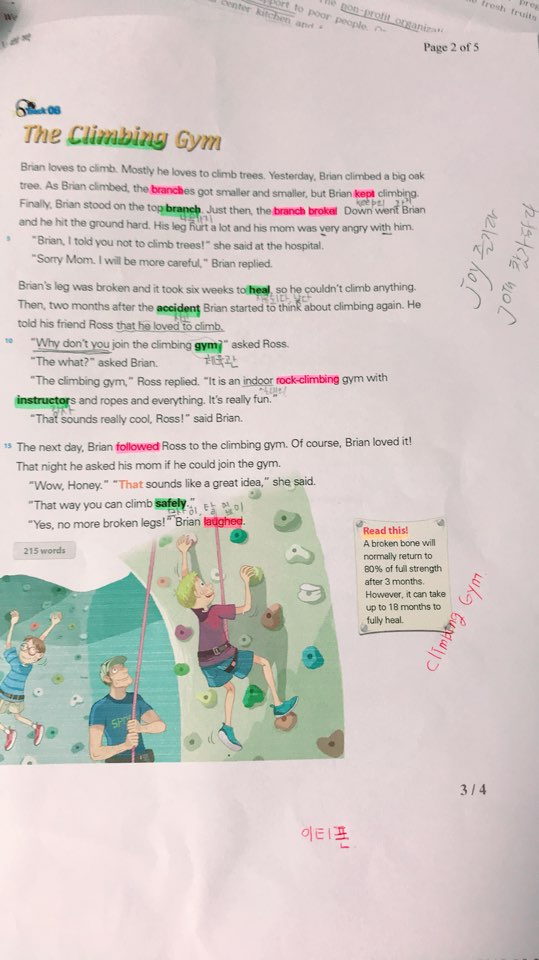 port to poor people.
the non-profit organizati
fresh fruits
center kitchen and
Page 2 of 5
The Climbing Gym
Brian loves to climb. Mostly he loves to climb trees. Yesterday, Brian climbed a big oak
tree. As Brian climbed, the branches got smaller and smaller, but Brian kept climbing.
Finally, Brian stood on the top branch. Just then, the branch broke! Down went Brian
and he hit the ground hard. His leg hurt a lot and his mom was very angry with him.
5 "Brian, I told you not to climb trees!" she said at the hospital.
"Sorry Mom. I will be more careful," Brian replied.
Brian's leg was broken and it took six weeks to heal, so he couldn't climb anything.
Then, two months after the accident, Brian started to think about climbing again. He
told his friend Ross that he loved to climb.
10 "Why don't you join the climbing gym?" asked Ross.
체육관
"The what?" asked Brian.
"The climbing gym," Ross replied. "It is an indoor rock-climbing gym with
instructors and ropes and everything. It's really fun."
강사
"That sounds really cool, Ross!" said Brian.
15 The next day, Brian followed Ross to the climbing gym. Of course, Brian loved it!
That night he asked his mom if he could join the gym.
"Wow, Honey." "That sounds like a great idea," she said.
"That way you can climb safely."
"Yes, no more broken legs!" Brian laughed.
215 words
Read this!
A broken bone will
normally return to
80% of full strength
after 3 months.
However, it can take
up to 18 months to
fully heal.
joy 즐기다
join 참가하다
Climbing Gym
3 / 4
이티폰